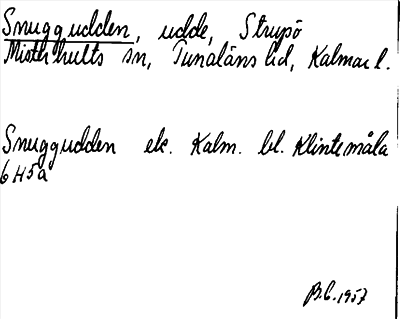 Snuggudden, udde, Strupö
Misterhults sn, Tunaläns hd, Kalmar l.
Snuggudden ek. Kalm. bl. Klintemåla
6H5a
B.C. 1957